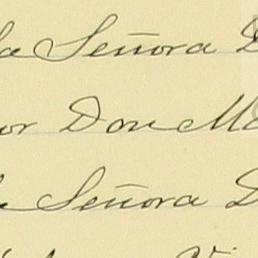 la Señora D
or Don M
la Señora D